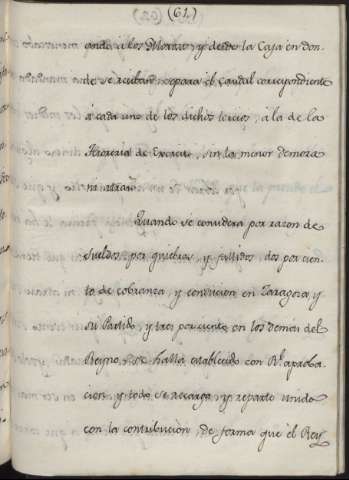 (61.)
ando à los Morosos, y desde la Caja en don-
de se reciban, separa el caudal correspondiente
à cada uno de los dichos tercios, à la de la
Thesoreria de Exercito, sin la menor demora
ni atraso.
Quando se considera por razon de
sueldos, por quiebras, y fallidos, dos por cien-
to de cobranza, y conducion en Zaragoza, y
su Partido, y tres por ciento, en los demas del
Reyno, se halla establecido con Rl. aproba-
cion, y todo se recarga, y reparte unido
con la contribucion de forma que el Rey